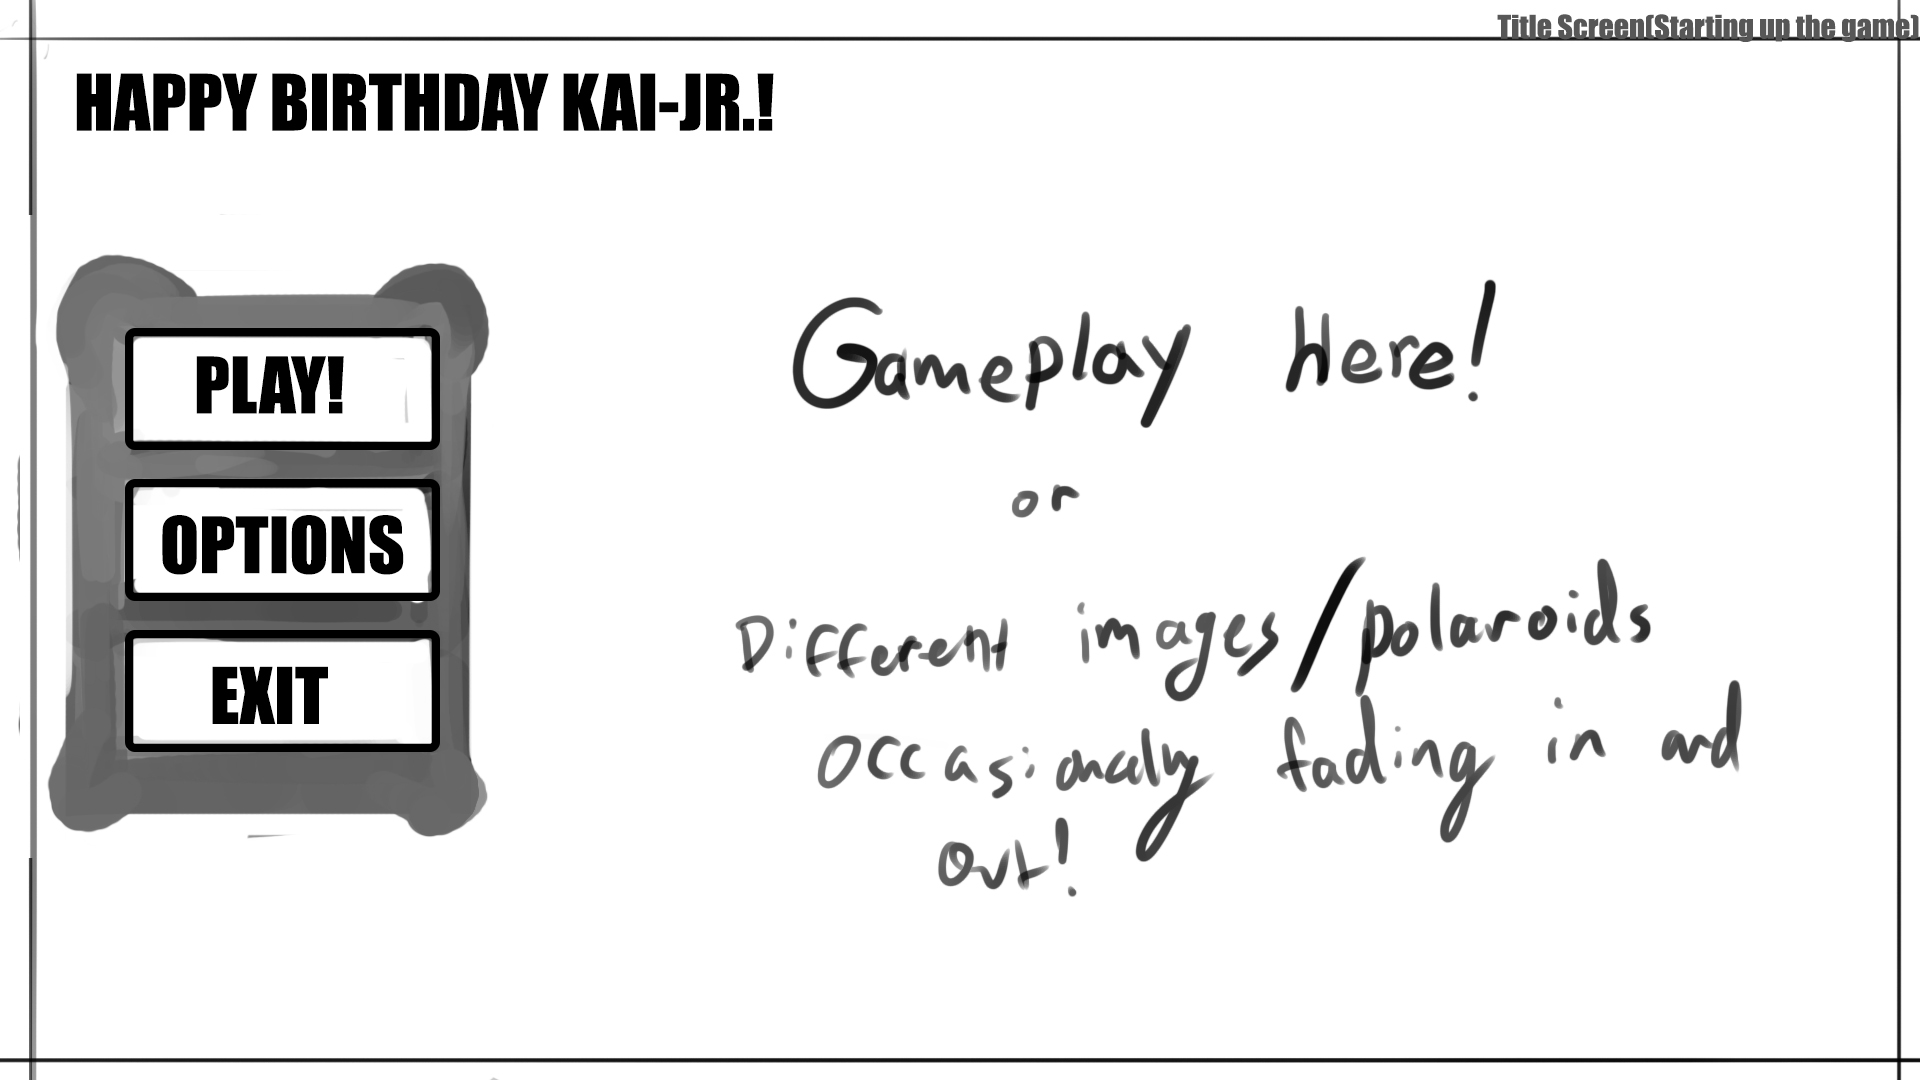 Title Screen(Starting up the game)
HAPPY BIRTHDAY KAI-JR.!
PLAY!
OPTIONS
EXIT
Gameplay Here!
or
Different images/polaroids
occasionally fading in and
out!